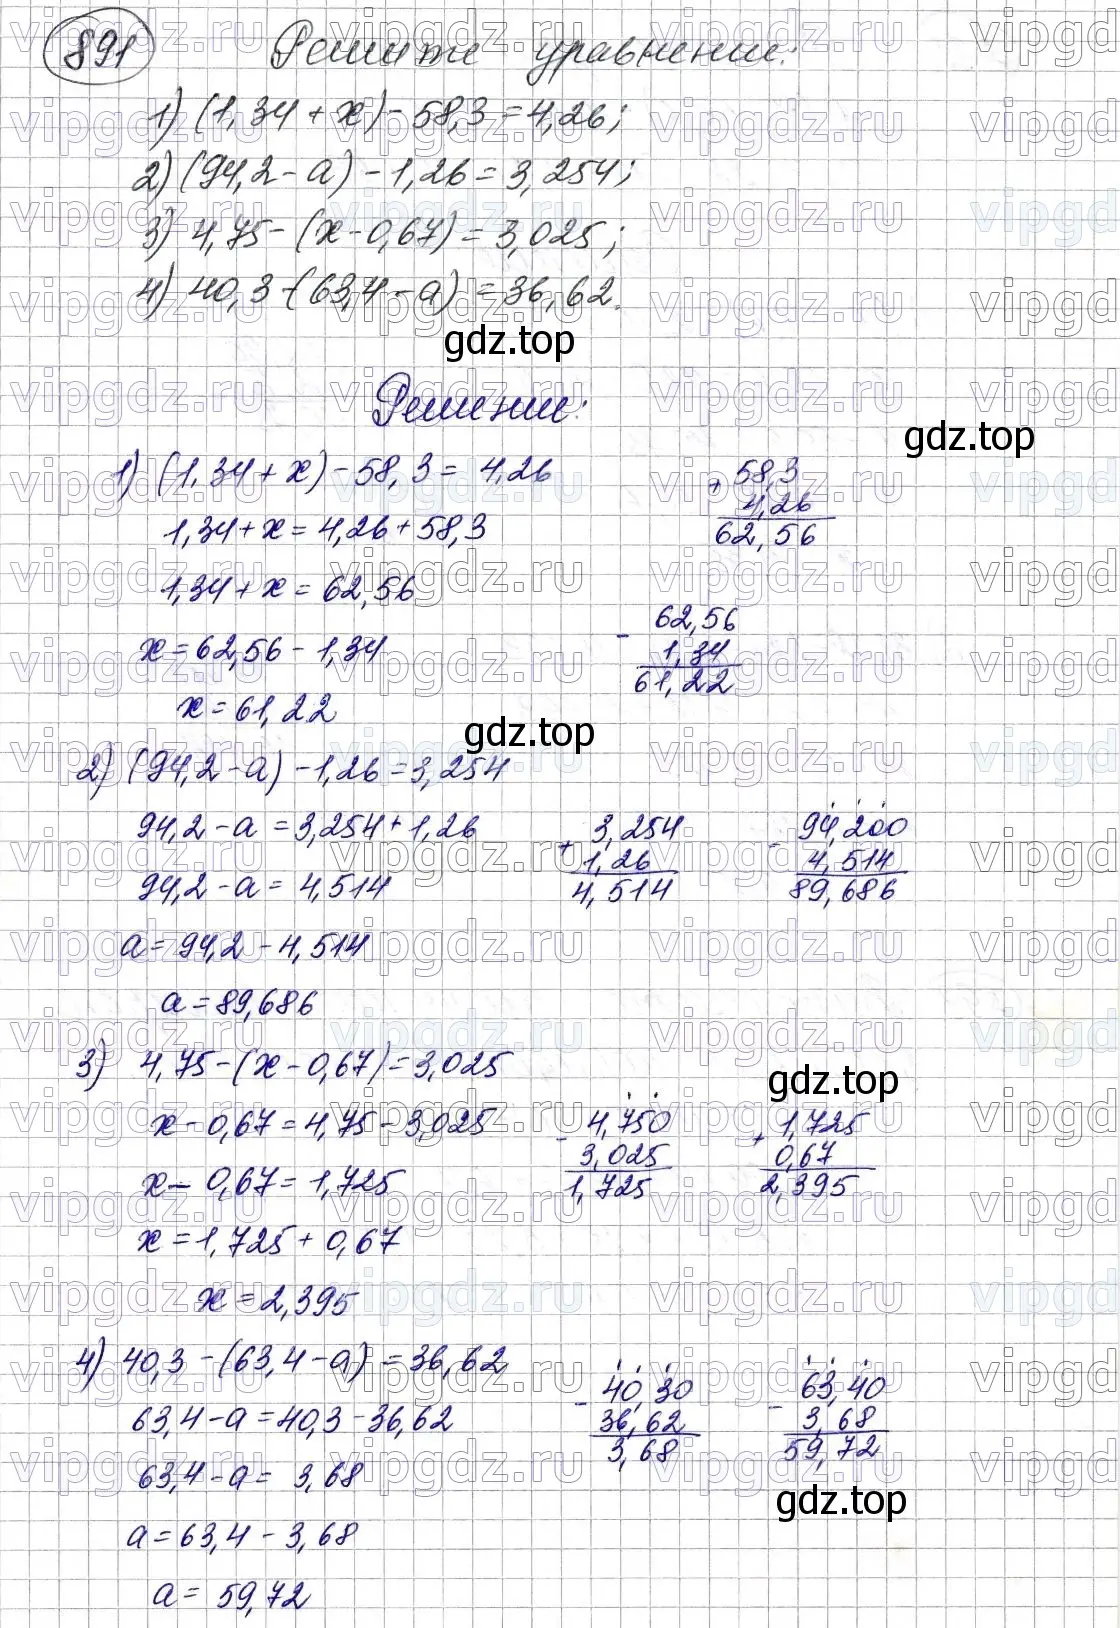 891 Решите уравнение:
1) (1,34 + x) - 58,3 = 4,26;
2) (94,2 - a) - 1,26 = 3,254;
3) 4,75 - (x - 0,67) = 3,025;
4) 40,3 - (63,4 - a) = 36,62.
gdz.top
Решение:
gdz.top
1) (1,34 + x) - 58,3 = 4,26
1,34 + x = 4,26 + 58,3
1,34 + x = 62,56
x = 62,56 - 1,34
x = 61,22
+ 58,3
4,26
62,56
- 62,56
1,34
61,22
gdz.top
2) (94,2 - a) - 1,26 = 3,254
94,2 - a = 3,254 + 1,26
94,2 - a = 4,514
a = 94,2 - 4,514
a = 89,686
+ 3,254
1,26
4,514
- 94,200
4,514
89,686
3) 4,75 - (x - 0,67) = 3,025
x - 0,67 = 4,75 - 3,025
x - 0,67 = 1,725
x = 1,725 + 0,67
x = 2,395
gdz.top
- 4,750
3,025
1,725
+ 1,725
0,67
2,395
4) 40,3 - (63,4 - a) = 36,62
63,4 - a = 40,3 - 36,62
63,4 - a = 3,68
a = 63,4 - 3,68
a = 59,72
- 40,30
36,62
3,68
- 63,40
3,68
59,72
gdz.top
vipgdz.ru